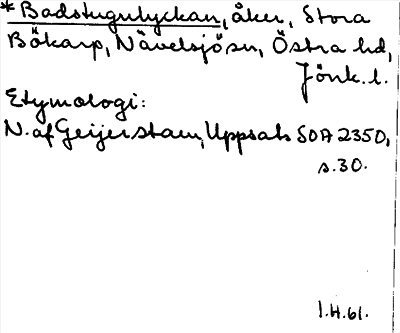 *Badstugulyckan, åker, Stora
Bökarp, Nävelsjösn, Östra hd,
Jönk. l.
Etymologi:
N. af Geijerstam, Uppsats SOA 2350,
s. 30.
I.H.61.